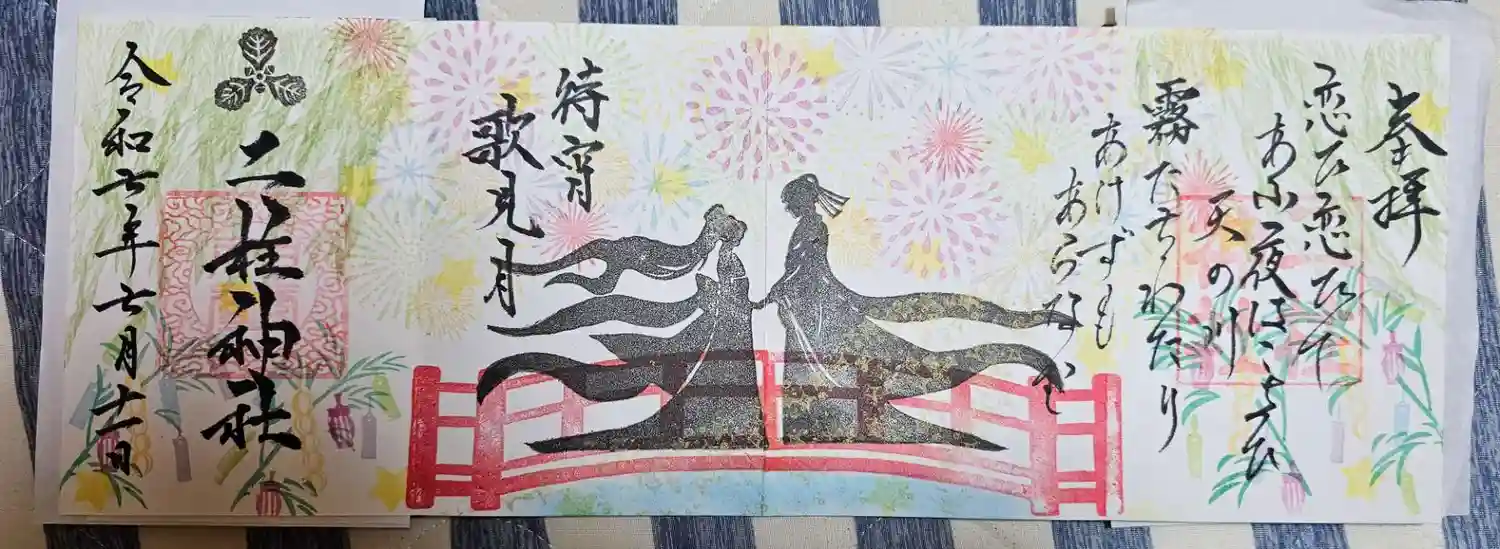 奉拝
恋ひ恋ひて
あふ夜はこよひ
天の川
霧たちわたり
あけずも
あらなむ
待宵
歌見月
二柱神社
令和七年七月十一日